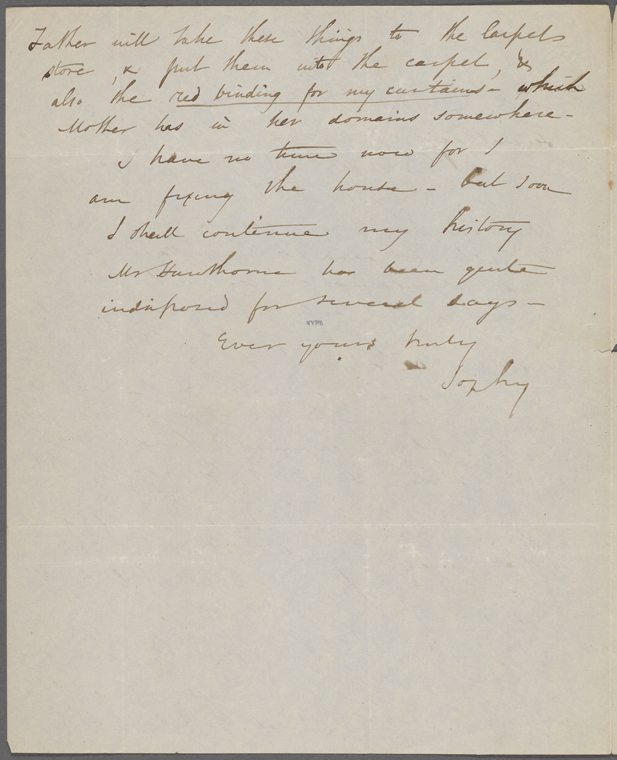 Father will take these things to the Carpet
store, & put them into the carpet, &
also the red binding for my curtains - which
Mother has in her domains somewhere -
I have no time now for I
am fixing the house - but soon
I shall continue my history
Mr Hawthorne has been quite
indisposed for several days -
NYPL
Ever yours truly
Sophy